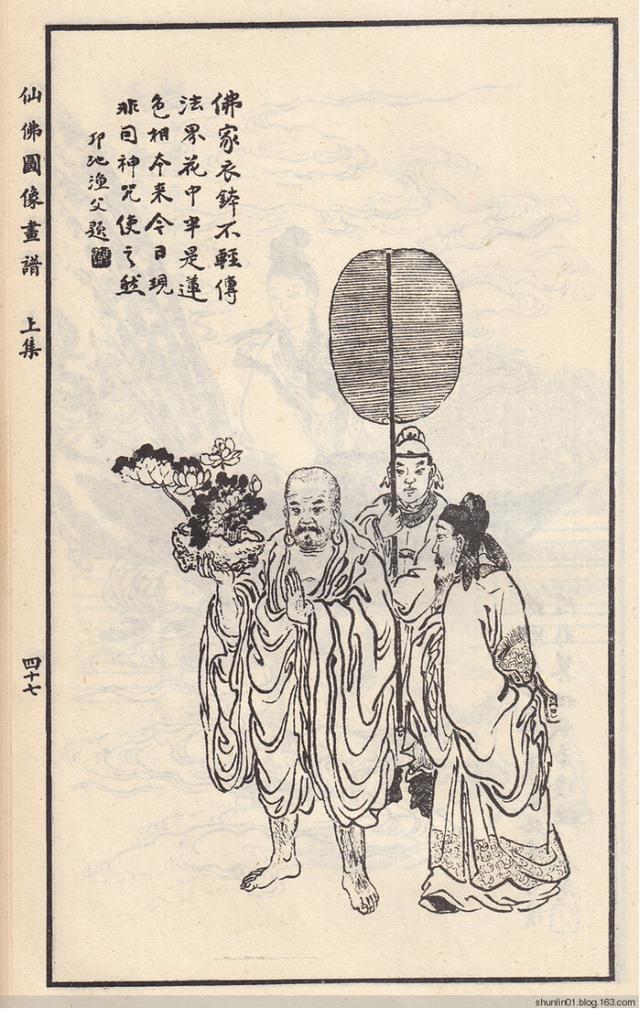 佛家衣鉢不輕傳
法界花中半是蓮
色相本来今日現
非同神咒使之然
邛池漁父題
仙佛圖像畫譜 上集
四十七
shunlin01.blog.163.com